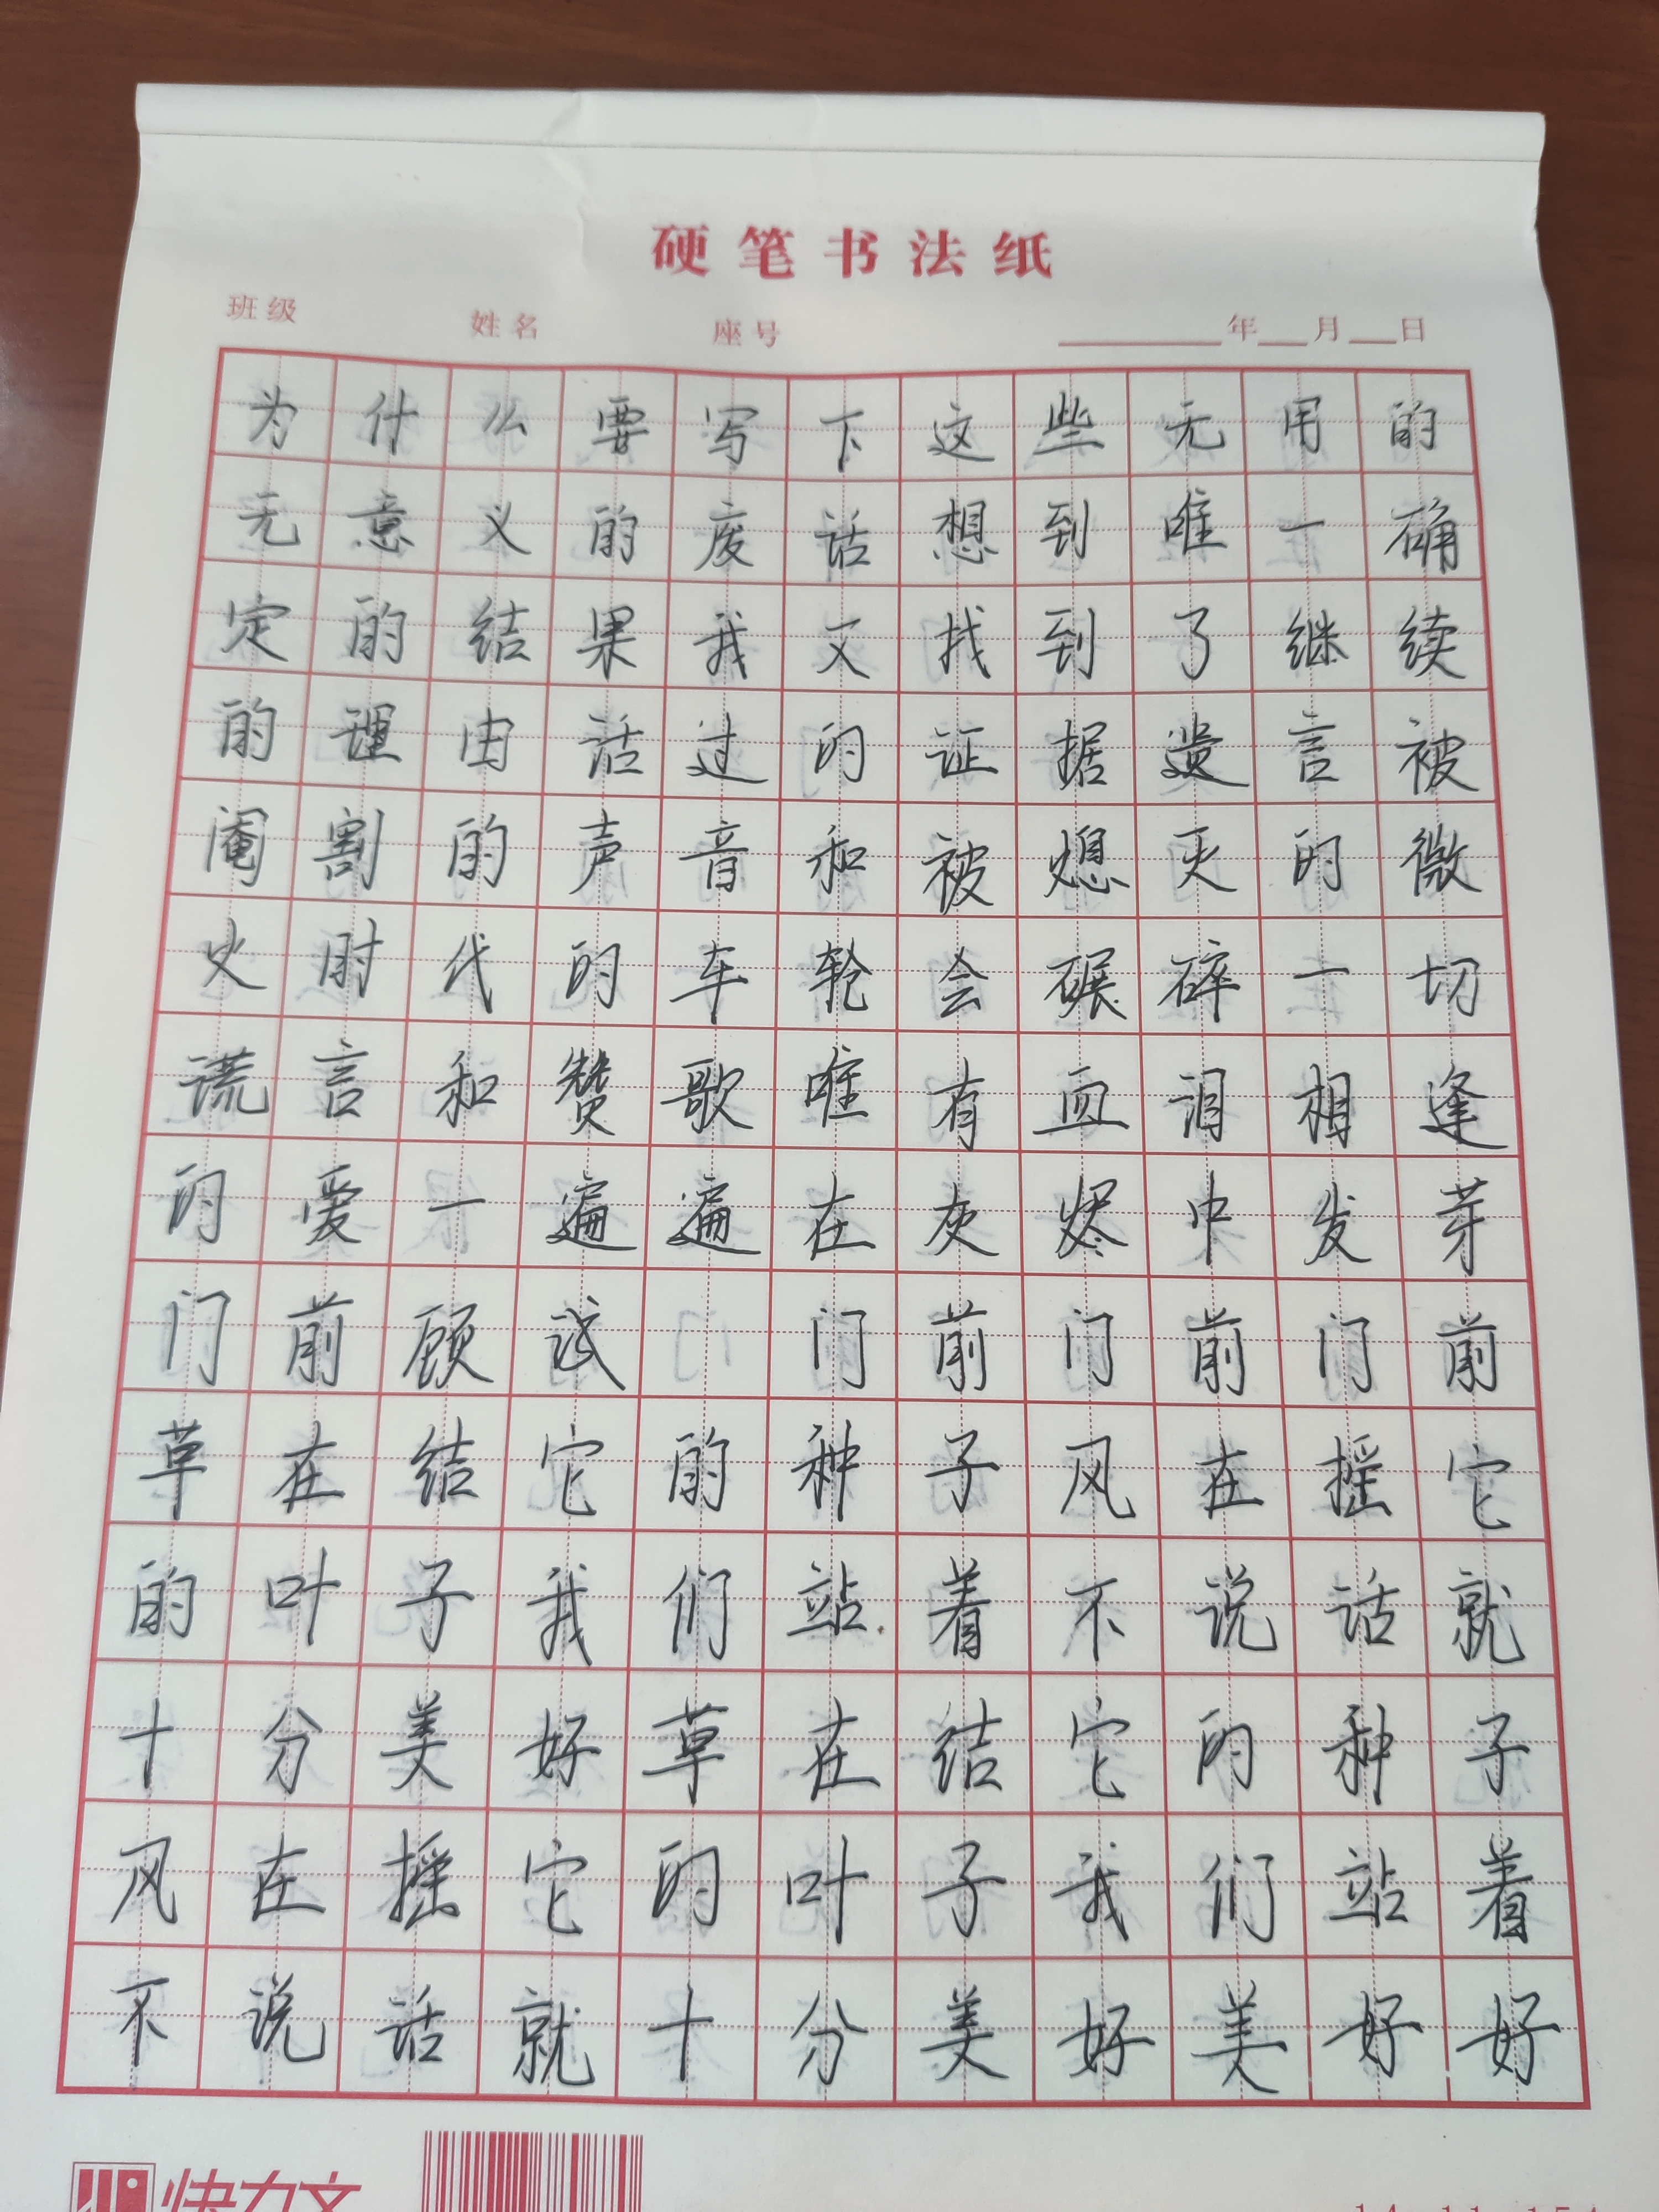 硬笔书法纸
班级 姓名 座号 年 月 日
为什么要写下这些无用的
无意义的废话想到唯一确
定的结果我又找到了继续
的理由活过的证据遗言被
阉割的声音和被熄灭的微
火时代的车轮会碾碎一切
谎言和赞歌唯有血泪相逢
的爱一遍遍在灰烬中发芽
门前顾城门前门前门前
草在结它的种子风在摇它
的叶子我们站着不说话就
十分美好草在结它的种子
风在摇它的叶子我们站着
不说话就十分美好美好好
快力文